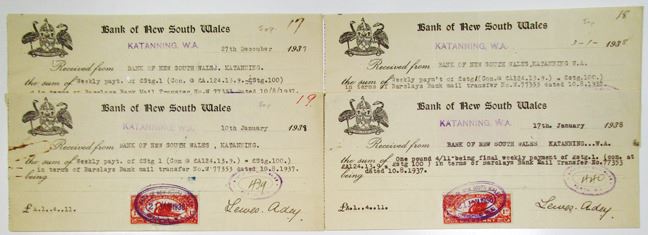 17
Bank of New South Wales
KATANNING, W.A.
27th December 1937
Received from BANK OF NEW SOUTH WALES, KATANNING.
the sum of Weekly payt. of £stg.1 (Con. @ £A124.13.9. = £stg.100)
in terms of Barclays Bank Mail Transfer No.W 77353 dated 10/8/1937.
18
Bank of New South Wales
KATANNING, W.A.
3-1-1938
Received from BANK OF NEW SOUTH WALES, KATANNING W.A.
the sum of Weekly paym't of £stg1(Con. @ £A124.13.9.) = £stg.100.)
in terms of Barclays Bank mail transfer No.W.77353 dated 10.8.1938.
19
Bank of New South Wales
KATANNING, W.A.
10th January 1938
Received from BANK OF NEW SOUTH WALES, KATANNING.
the sum of Weekly payt. of £Stg 1 (Con @ £A124.13.9 = £Stg.100.)
in terms of Barclays Bank mail Transfer No. W 77353 dated 10.8.1937.
being
£A.1..4..11.
Lewes. Adey.
Bank of New South Wales
KATANNING, W.A.
17th. January 1938
Received from BANK OF NEW SOUTH WALES KATANNING...W.A.
the sum of One pound 4/11 being final weekly payment of £stg.1. (con at
£A124.13.9 = £stg 100 ) in terms of Barclays Bank Mail Transfer No.W.77353
dated 10.8.1937.
being
£A.1..4..11.
Lewes. Adey